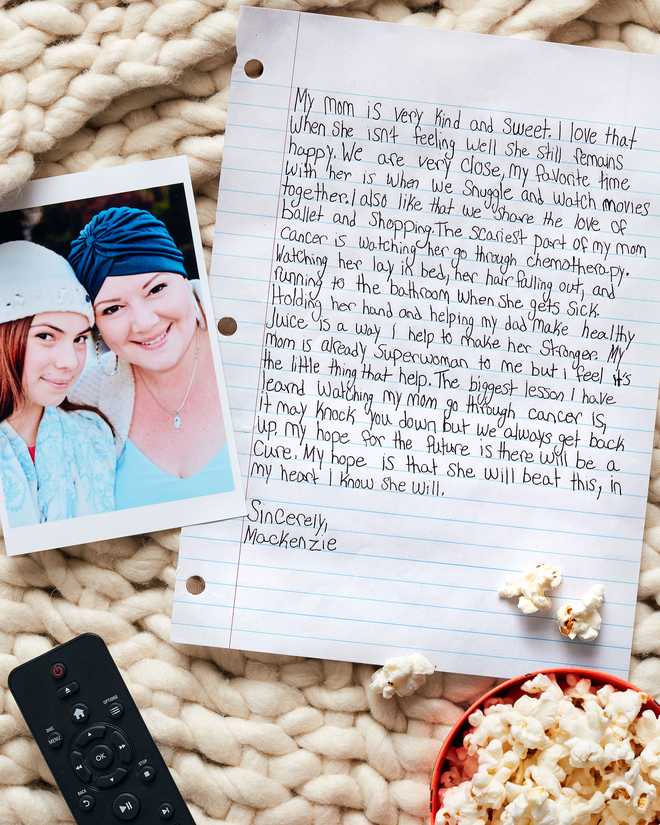 My mom is very kind and sweet. I love that
when she isn't feeling well she still remains
happy. We are very close, my favorite time
with her is when we snuggle and watch movies
together. I also like that we share the love of
ballet and shopping. The scariest part of my mom
cancer is watching her go through chemotherapy.
Watching her lay in bed, her hair falling out, and
running to the bathroom when she gets sick.
Holding her hand and helping my dad make healthy
Juice is a way I help to make her stronger. My
mom is already Superwoman to me but i feel it's
the little thing that help. The biggest lesson I have
learnd watching my mom go through cancer is,
it may knock you down but we always get back
up, my hope for the future is there will be a
cure. My hope is that she will beat this, in
my heart I know she will.
Sincerely,
Mackenzie
OPTIONS
DISC
MENU
OK
STOP
BACK